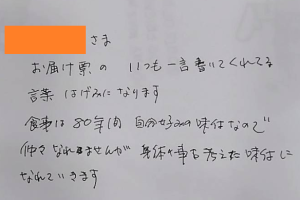 さま
お届け票の いつも一言書いてくれてる
言葉 はげみになります
食事は80年間 自分好みの味付なので
仲々なれませんが 身体や事も考えた味付に
なれていきます